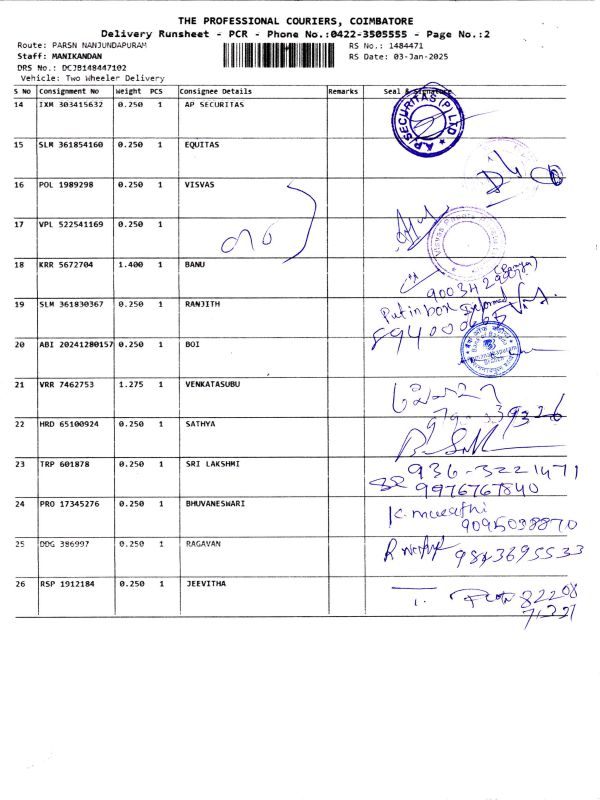 THE PROFESSIONAL COURIERS, COIMBATORE
Delivery Runsheet - PCR - Phone No.:0422-3505555 - Page No.:2
Route: PARSN NANJUNDAPURAM RS No.: 1484471
Staff: MANIKANDAN RS Date: 03-Jan-2025
DRS No.: DCJB148447102
Vehicle: Two Wheeler Delivery
S No Consignment No Weight PCS Consignee Details Remarks Seal & Signature
14 IXM 303415632 0.250 1 AP SECURITAS
A.P. SECURITAS (P) LTD
15 SLM 361854160 0.250 1 EQUITAS
16 POL 1989298 0.250 1 VISVAS
17 VPL 522541169 0.250 1
18 KRR 5672704 1.400 1 BANU
19 SLM 361830367 0.250 1 RANJITH
Put in box
20 ABI 20241280157 0.250 1 BOI
21 VRR 7462753 1.275 1 VENKATASUBU
22 HRD 65100924 0.250 1 SATHYA
23 TRP 601878 0.250 1 SRI LAKSHMI
936-3221471
9976767840
24 PRO 17345276 0.250 1 BHUVANESWARI
9095038870
25 DDG 386997 0.250 1 RAGAVAN
9843695533
26 RSP 1912184 0.250 1 JEEVITHA
82208
71221